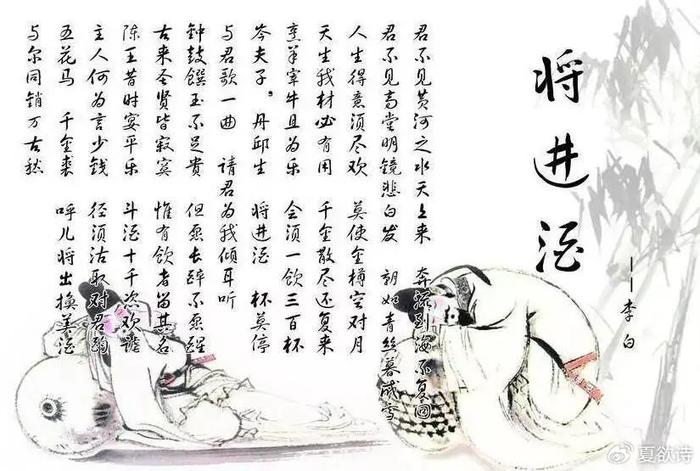 将进酒
——李白
君不见黄河之水天上来 奔流到海不复回
君不见高堂明镜悲白发 朝如青丝暮成雪
人生得意须尽欢 莫使金樽空对月
天生我材必有用 千金散尽还复来
烹羊宰牛且为乐 会须一饮三百杯
岑夫子。丹邱生 将进酒 杯莫停
与君歌一曲 请君为我倾耳听
钟鼓馔玉不足贵 但愿长醉不愿醒
古来圣贤皆寂寞 惟有饮者留其名
陈王昔时宴平乐 斗酒十千恣欢谑
主人何为言少钱 径须沽取对君酌
五花马 千金裘 呼儿将出换美酒
与尔同销万古愁
夏欲诗